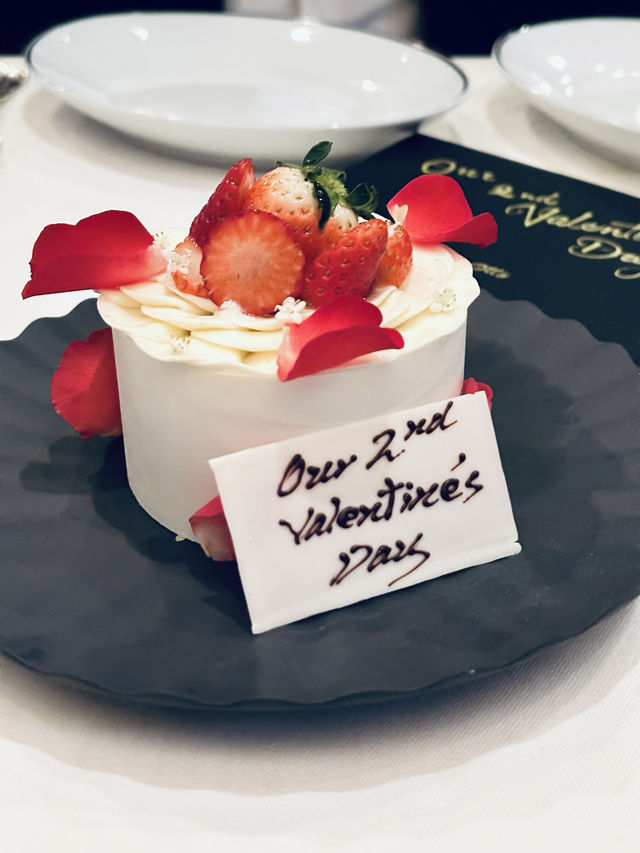 Our 2nd
Valentine's
Day
Our 2nd
Valent
Day